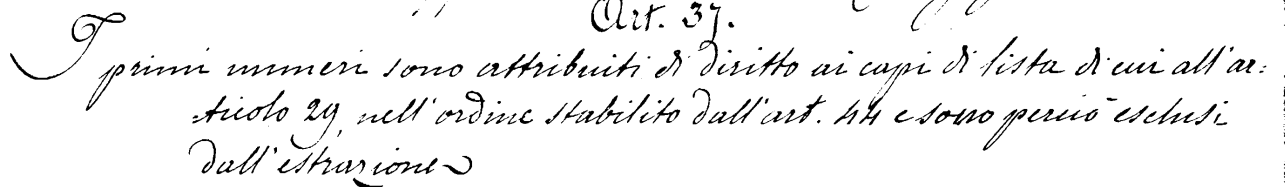 Art. 37.
I primi numeri sono attribuiti di diritto ai capi di lista di cui all'ar=
ticolo 29, nell'ordine stabilito dall'art. 44 e sono perciò esclusi
dall'estrazione